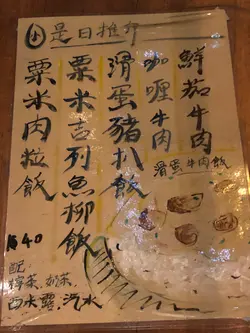 是日推介
鮮茄牛肉
咖喱牛肉
滑蛋牛肉飯
滑蛋豬扒飯
粟米吉列魚柳飯
粟米肉粒飯
$40
配
檸茶、奶茶、
西水露、汽水